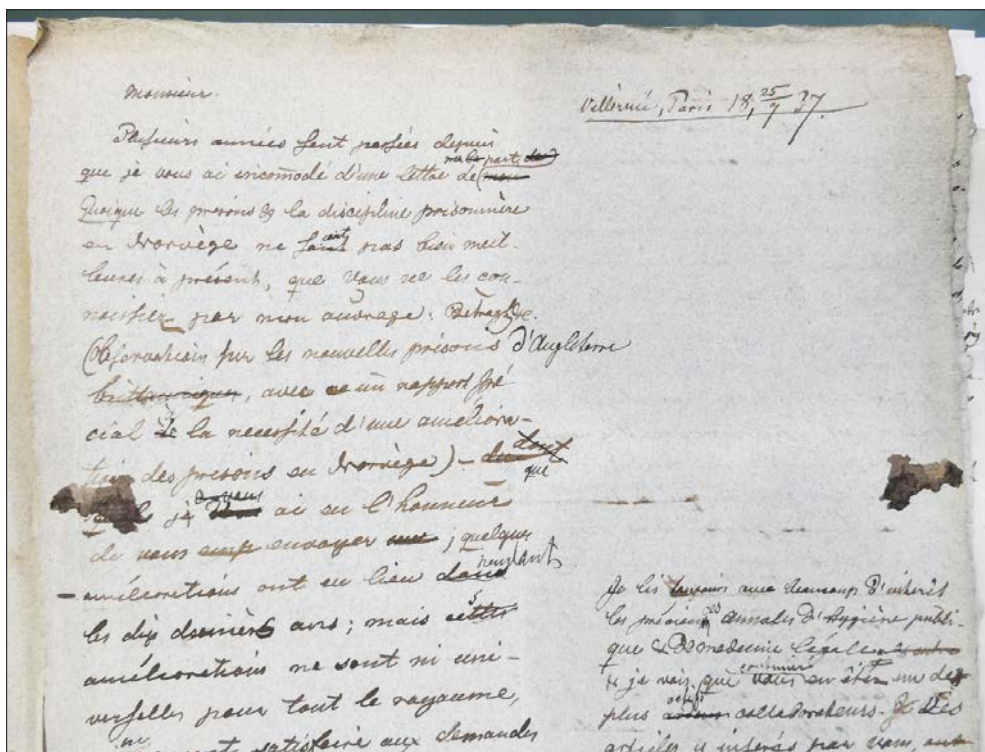 Monsieur.
Villermé, Paris 18, 25/7 37.
Plusieurs années sont passées depuis
que je vous ai incommodé d'une lettre de ma part
Quoique les prisons & la discipline prisonnière
en Norvège ne sont pas bien meil-
leures à présent, que vous ne les con-
naissiez par mon ouvrage:
(Observations sur les nouvelles prisons d'Angleterre
brittanniques, avec un rapport spé
cial à la necessité d'une améliora-
tion des prisons en Norvège) – dont
que
je vous ai eu l'honneur
de vous envoyer ; quelques
améliorations ont eu lieu pendant
les dix dernières ans; mais ces
améliorations ne sont ni uni-
verselles pour tout le royaume,
ni satisfaire aux demandes
Je lis toujours avec beaucoup d'interêt
les annales d'hygiène publi-
que & de medecine légale
& je vois, que vous en êtes un des
plus actifs collaborateurs. Les
articles insérés par vous, ont